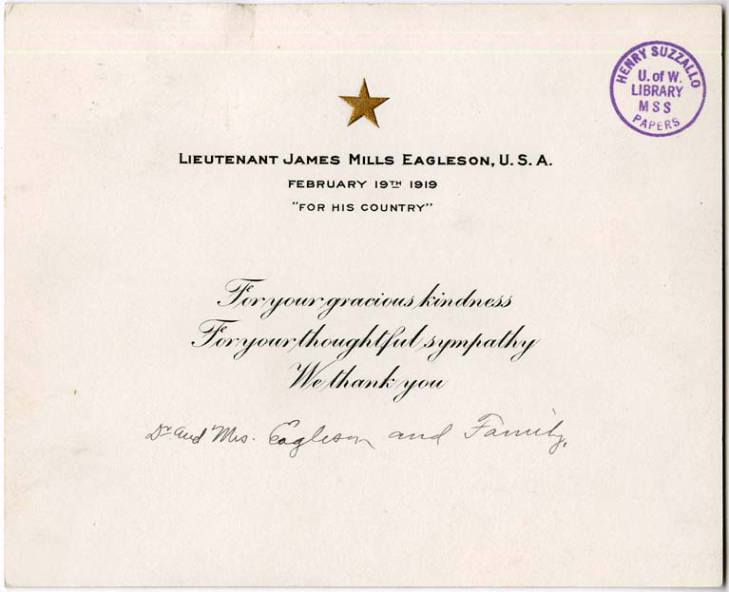 HENRY SUZZALLO
U. of W.
LIBRARY
MSS
PAPERS
LIEUTENANT JAMES MILLS EAGLESON, U.S.A.
FEBRUARY 19TH 1919
"FOR HIS COUNTRY"
For your gracious kindness
For your thoughtful sympathy
We thank you
Dr and Mrs. Eagleson and Family.